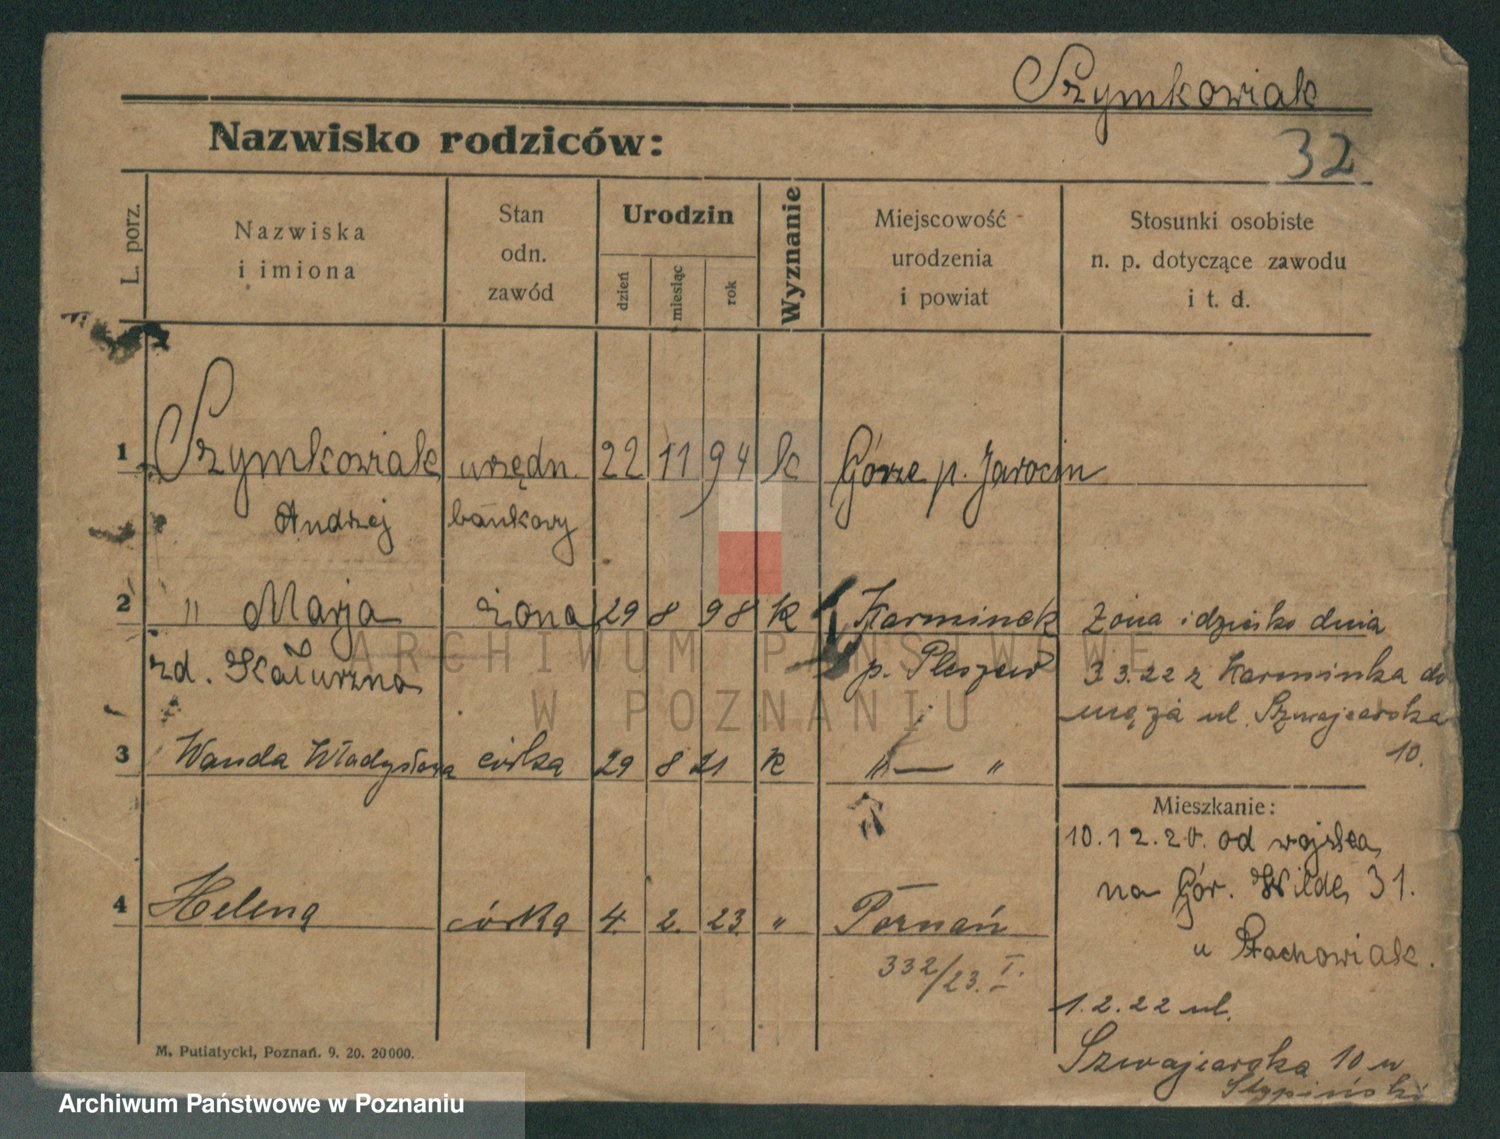 Szymkowiak
Nazwisko rodziców:
32
L. porz.
Nazwiska
i imiona
Stan
odn.
zawód
Urodzin
dzień
miesiąc
rok
Wyznanie
Miejscowość
urodzenia
i powiat
Stosunki osobiste
n. p. dotyczące zawodu
i t. d.
1 Szymkowiak urzędn. 22 11 94 k Górze p. Jarocin
Andrzej bankowy
2 " Marja żona 29 8 98 k Karminek Żona i dziecko dnia
zd. Kałużna p. Pleszew 3.3.22 z Karminka do
męża ul Szwajcarska
10.
3 Wanda Władysława córka 29 8 21 k " — "
Mieszkanie:
10.12.20. od wojska,
na Gór. Wilde, 31.
u Stachowiak.
4 Helena córka 4. 2. 23. " Poznań
332/23. I.
1.2.22 ul.
Szwajcarska 10 u
Stypiński
M. Putiatycki, Poznań. 9. 20. 20000.
ARCHIWUM PAŃSTWOWE
W POZNANIU
Archiwum Państwowe w Poznaniu